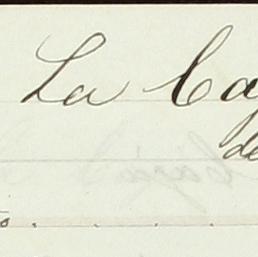 La Ca
de